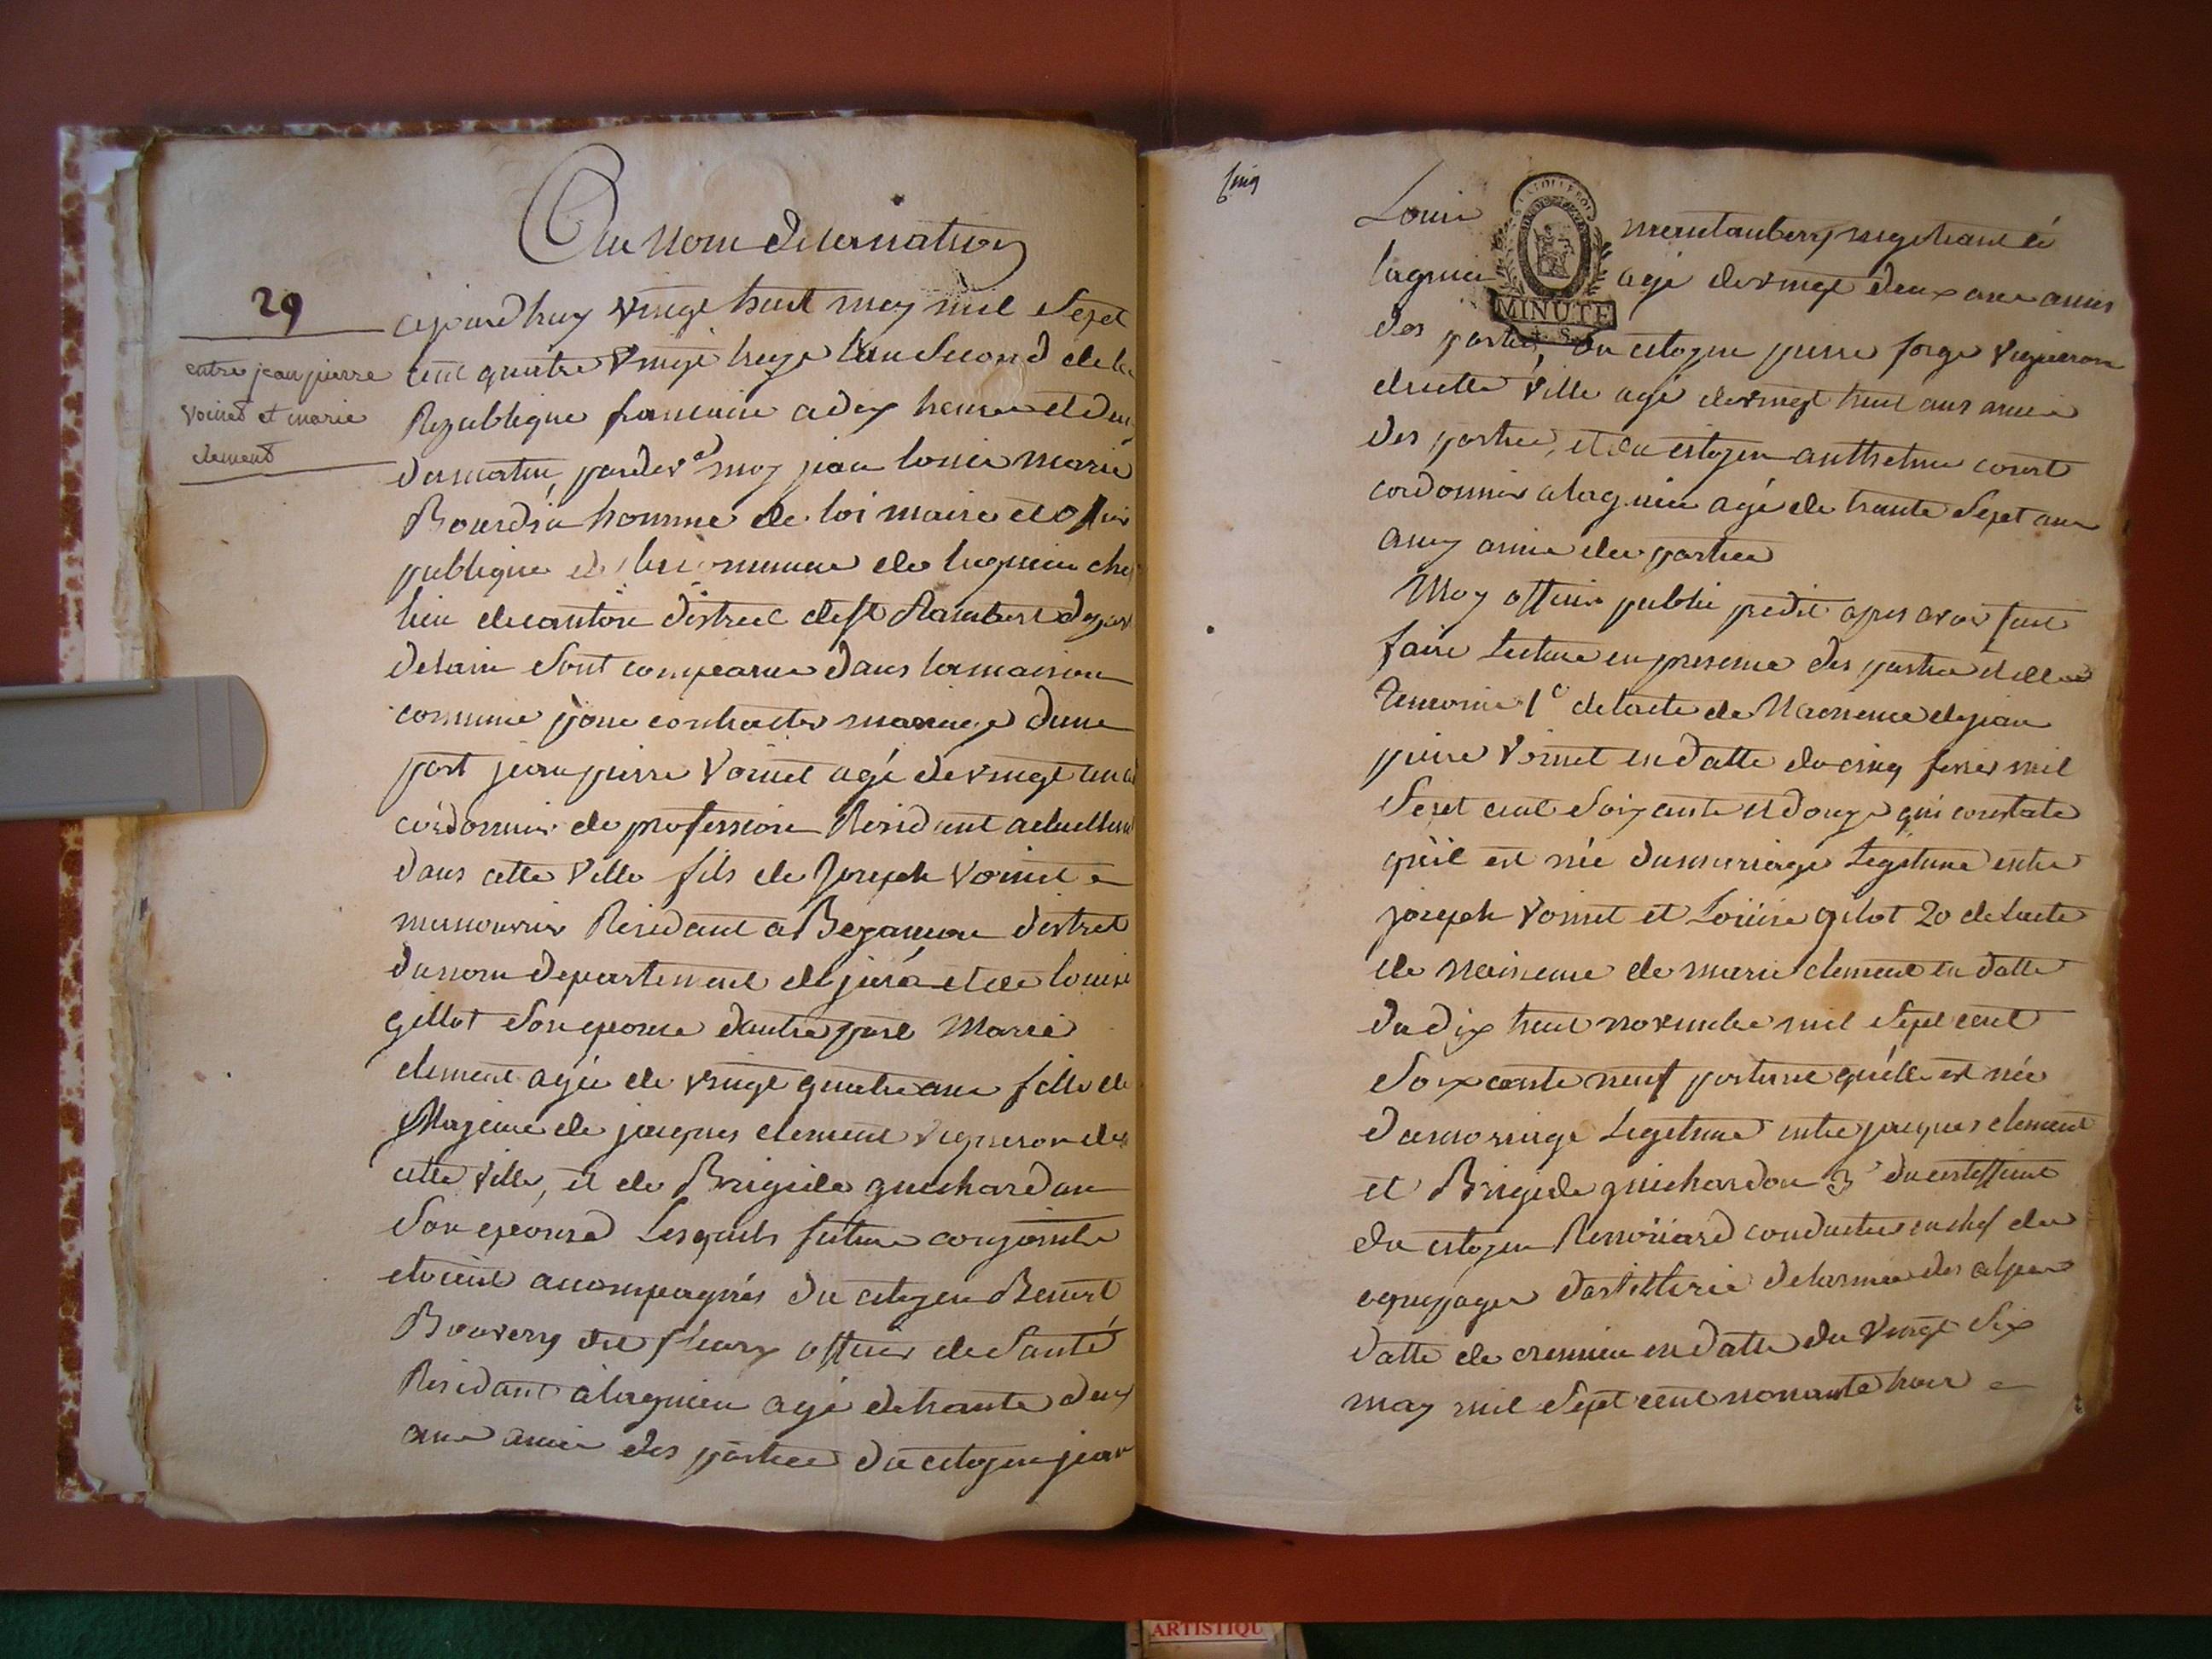 Au Nom de la nation
29
entre jean pierre
voined et marie
clement
aujourdhuy vingt huit may mil Sept
cent quatre vingt treize lan Second de la
Republique francaise a dix heures et demi
du matin, pardevt moy jean louis marie
Bourdin homme de loi maire et officier
publique de la commune de lagnieu chef
lieu de canton district de st Rambert depart
de lain Sont comparus dans la maison
commune pour contracter mariage dune
part jean pierre Voinet agé de vingt un an
cordonnier de profession Residant actuellement
dans cette Ville fils de Joseph Voinet
manouvrier Residant a Bezancon district
du nom departement du jura et de louise
gillot Son epouse dautre part Marie
clement agée de vingt quatre ans fille de
Majeure de jacques clement vigneron de
cette ville, et de Brigide guichardon
Son epouse Lesquels futurs conjoints
etoient acompagnés du citoyen Benoit
Bouvery dit fleury officier de Santé
Residant a lagnieu agé de trante deux
ans amis des parties du citoyen jean
cinq
Louis montaubery negotiant à
lagnieu agé de vingt deux ans amis
MINUTE
des parties, du citoyen pierre forge vigneron
de cette Ville agé de vingt huit ans amis
des parties, et du citoyen anthelme courl
cordonnier a lagnieu agé de trante Sept ans
aussy amis des parties
Moy officier public predit apres avoir fait
faire Lecture en presence des parties et des
Temoins 1o de lacte de Naissence de jean
pierre Voinet en datte du cinq fevrier mil
Sept cent Soixante et douze qui constate
quil est née du mariage Legitime entre
joseph Voinet et Loüise gilot 2o de lacte
de Naissence de marie clement en datte
du dix huit novembre mil Sept cent
Soixcante neuf portant quelle est née
du mariage Legitime entre jacques clement
et Brigide guichardon 3o du certifficat
du citoyen Renoüard conducteur en chef des
equipages dartillerie de larmée des alpes
datté de cremieu en datte du vingt Six
may mil Sept cent nonante trois
ARTISTIQU